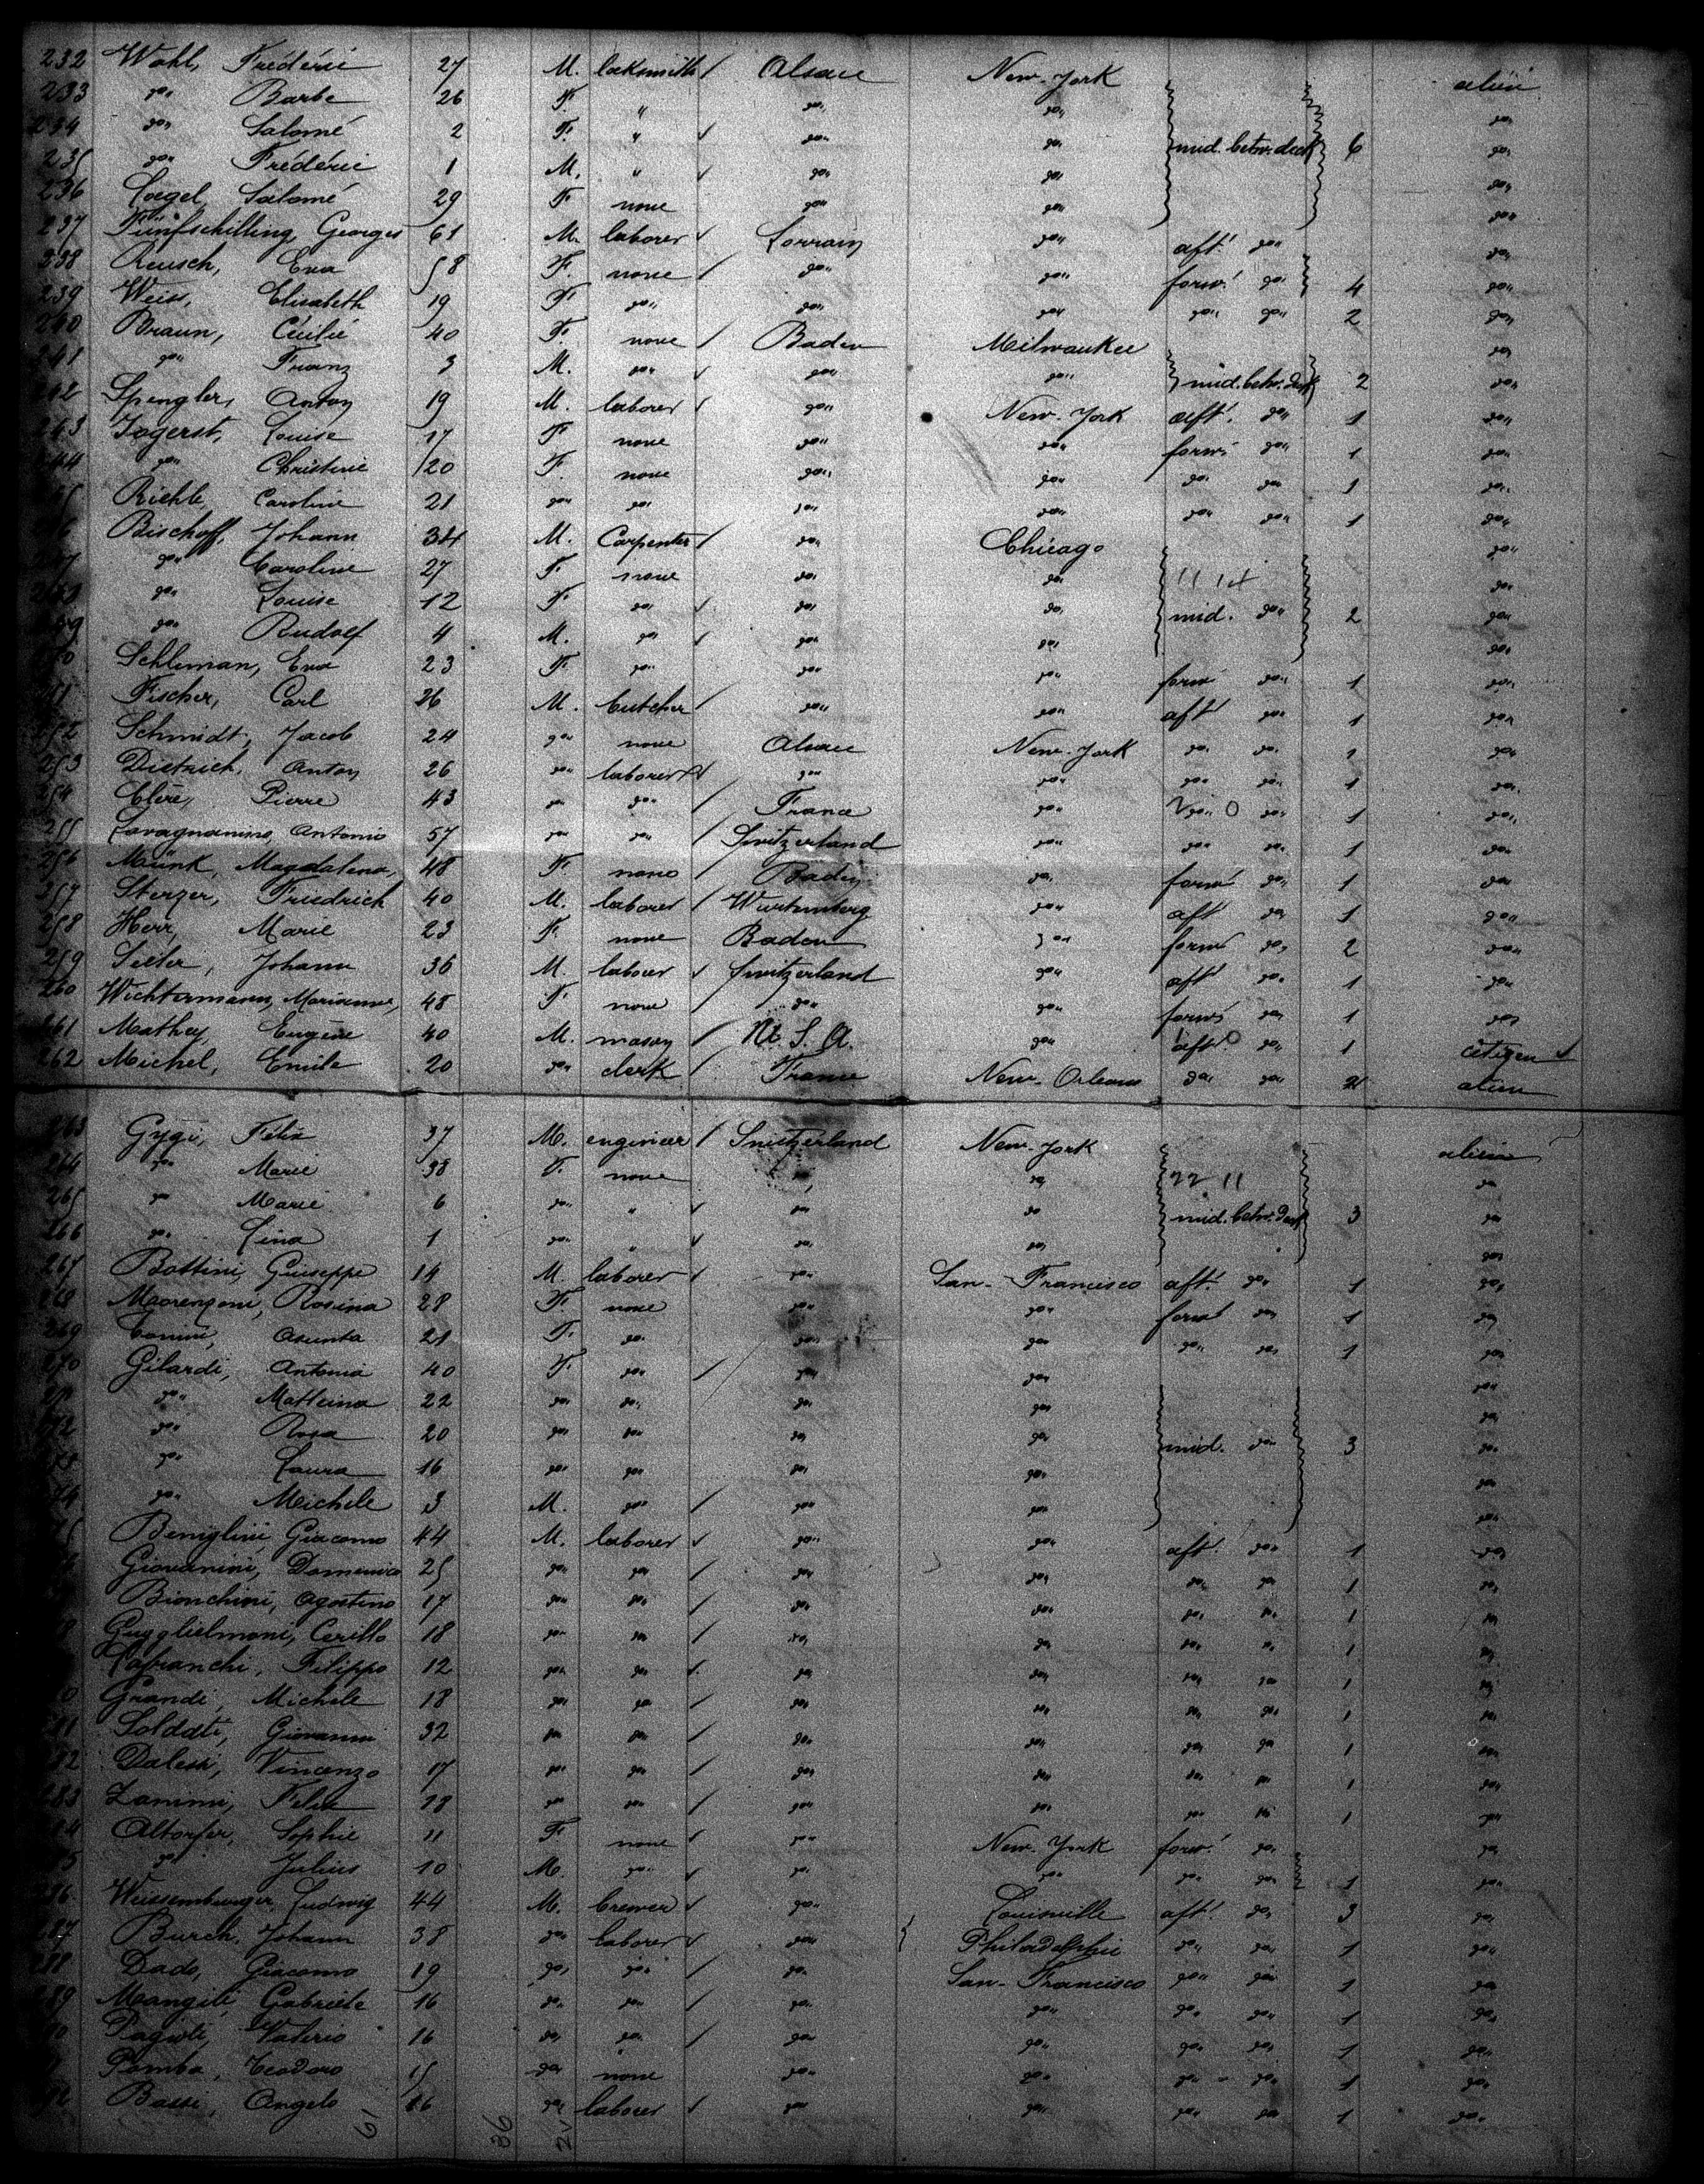 232 Wohl, Frédéric 27 M. locksmith / Alsace New-York alien
233 do Barbe 26 F. " do do do
234 do Salomé 2 F. " ✓ do do mid. betw. deck 6 do
235 do Frédéric 1 M. " ✓ do do do
236 Salomé 29 F. none do do do
237 Fünfschilling, Georges 61 M. laborer ✓ Lorrain do aft. do do
238 Reusch, Eva 58 F. none / do do forw. do 4 do
239 Weiss, Elisabeth 19 F. do do do do do 2 do
240 Braun, Cécilie 40 F. none / Baden Milwaukee do
241 do Franz 3 M. do ✓ do do mid. betw. deck 2 do
242 Spengler, Anton 19 M. laborer ✓ do New-York aft. do 1 do
243 Jogerst, Louise 17 F. none do do forw. do 1 do
244 do Christine 20 F. none do do do do 1 do
Riehle, Caroline 21 do do do do do do 1 do
Bischoff, Johann 34 M. Carpenter / do Chicago do
do Caroline 27 F. none do do 11 14 do
do Louise 12 F. do ✓ do do mid. do 2 do
do Rudolf 4 M. do ✓ do do do
Schleman, Eva 23 F. do do do forw do 1 do
Fischer, Carl 26 M. butcher / do do aft do 1 do
252 Schmidt, Jacob 24 do none Alsace New-York do do 1 do
253 Dietrich, Anton 26 do laborer ✓ do do do do 1 do
254 Clère, Pierre 43 do do / France do do do 1 do
255 Lavagnanino, Antonio 57 do do / Switzerland do do do 1 do
256 Münk, Magdalena, 48 F. none / Baden do forw do 1 do
257 Sterzer, Friedrich 40 M. laborer / Wurtemberg do aft do 1 do
258 Herr, Marie 23 F. none Baden do forw do 2 do
259 Seiler, Johann 36 M. laborer ✓ Switzerland do aft do 1 do
260 Wichtermann, Marianne, 48 F. none / do do forw do 1 do
261 Mathey, Eugène 40 M. mason / U. S. A. do aft. do 1 citizen
262 Michel, Emile 20 do clerk / France New-Orleans do do 2 alien
263 Gygi, Félix 37 M. engineer / Switzerland New-York alien
264 do Marie 38 F. none do do 22 11 do
265 do Marie 6 do " ✓ do do mid. betw. deck 3 do
266 do Lina 1 do " ✓ do do do
267 Bottini, Giuseppe 14 M. laborer ✓ do San-Francisco aft. do 1 do
268 Morenzoni, Rosina 28 F. none do do forw do 1 do
269 Asunta 21 F. do do do do do 1 do
270 Gilardi, Antonia 40 F. do / do do do
do Matteina 22 do do do do do
do Rosa 20 do do do do mid. do 3 do
do Laura 16 do do do do do
do Michele 3 M. do / do do do
Beniglini, Giacomo 44 M. laborer ✓ do do aft. do 1 do
Giovanini, Domenico 25 do do / do do do do 1 do
Bianchini, Agostino 17 do do / do do do do 1 do
Gugglielmoni, Cerillo 18 do do / do do do do 1 do
Lafranchi, Filippo 12 do do ✓ do do do do 1 do
Grandi, Michele 18 do do / do do do do 1 do
Soldati, Giovanni 32 do do / do do do do 1 do
Dalessi, Vincenzo 17 do do / do do do do 1 do
283 Zanini, Felix 18 do do / do do do do 1 do
Altorfer, Sophie 11 F. none ✓ do New-York forw. do do
do Julius 10 M. do ✓ do do do do 1 do
286 Weissemburger, Ludwig 44 M. brewer ✓ do Louisville aft. do 3 do
287 Burch, Johann 38 do laborer ✓ do Philadelphie do do 1 do
288 Dado, Giacomo 19 do do / do San-Francisco do do 1 do
289 Mangili, Gabriele 16 do do / do do do do 1 do
Pagioli, Valerio 16 do do / do do do do 1 do
Pomba, Teodoro 15 do none do do do do 1 do
Bassi, Angelo 16 do laborer ✓ do do do do 1 do
61 36 25